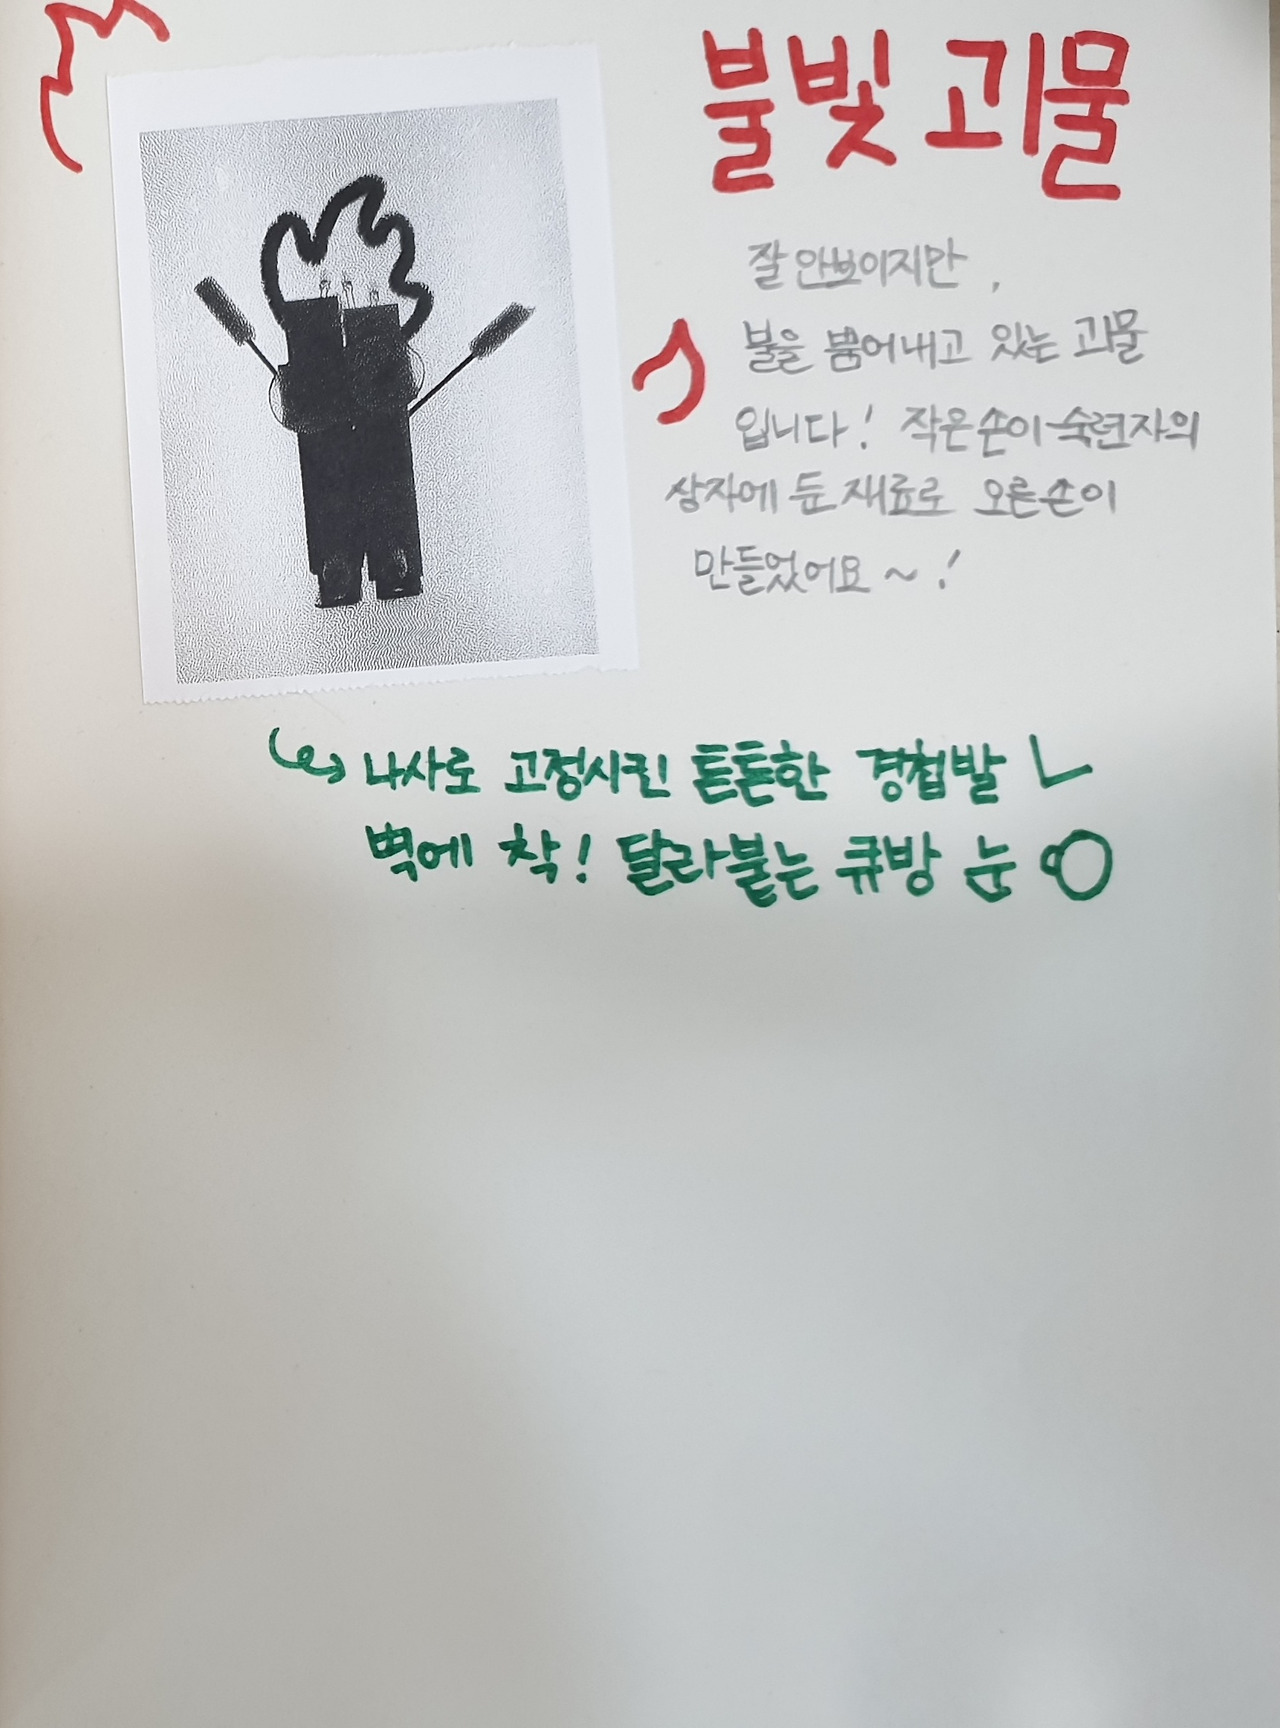 불빛 괴물
잘 안보이지만,
불을 뿜어내고 있는 괴물
입니다! 작은손이 숙련자의
상자에 둔 재료로 오른손이
만들었어요~!
나사로 고정시킨 튼튼한 경첩발
벽에 착! 달라붙는 큐방 눈